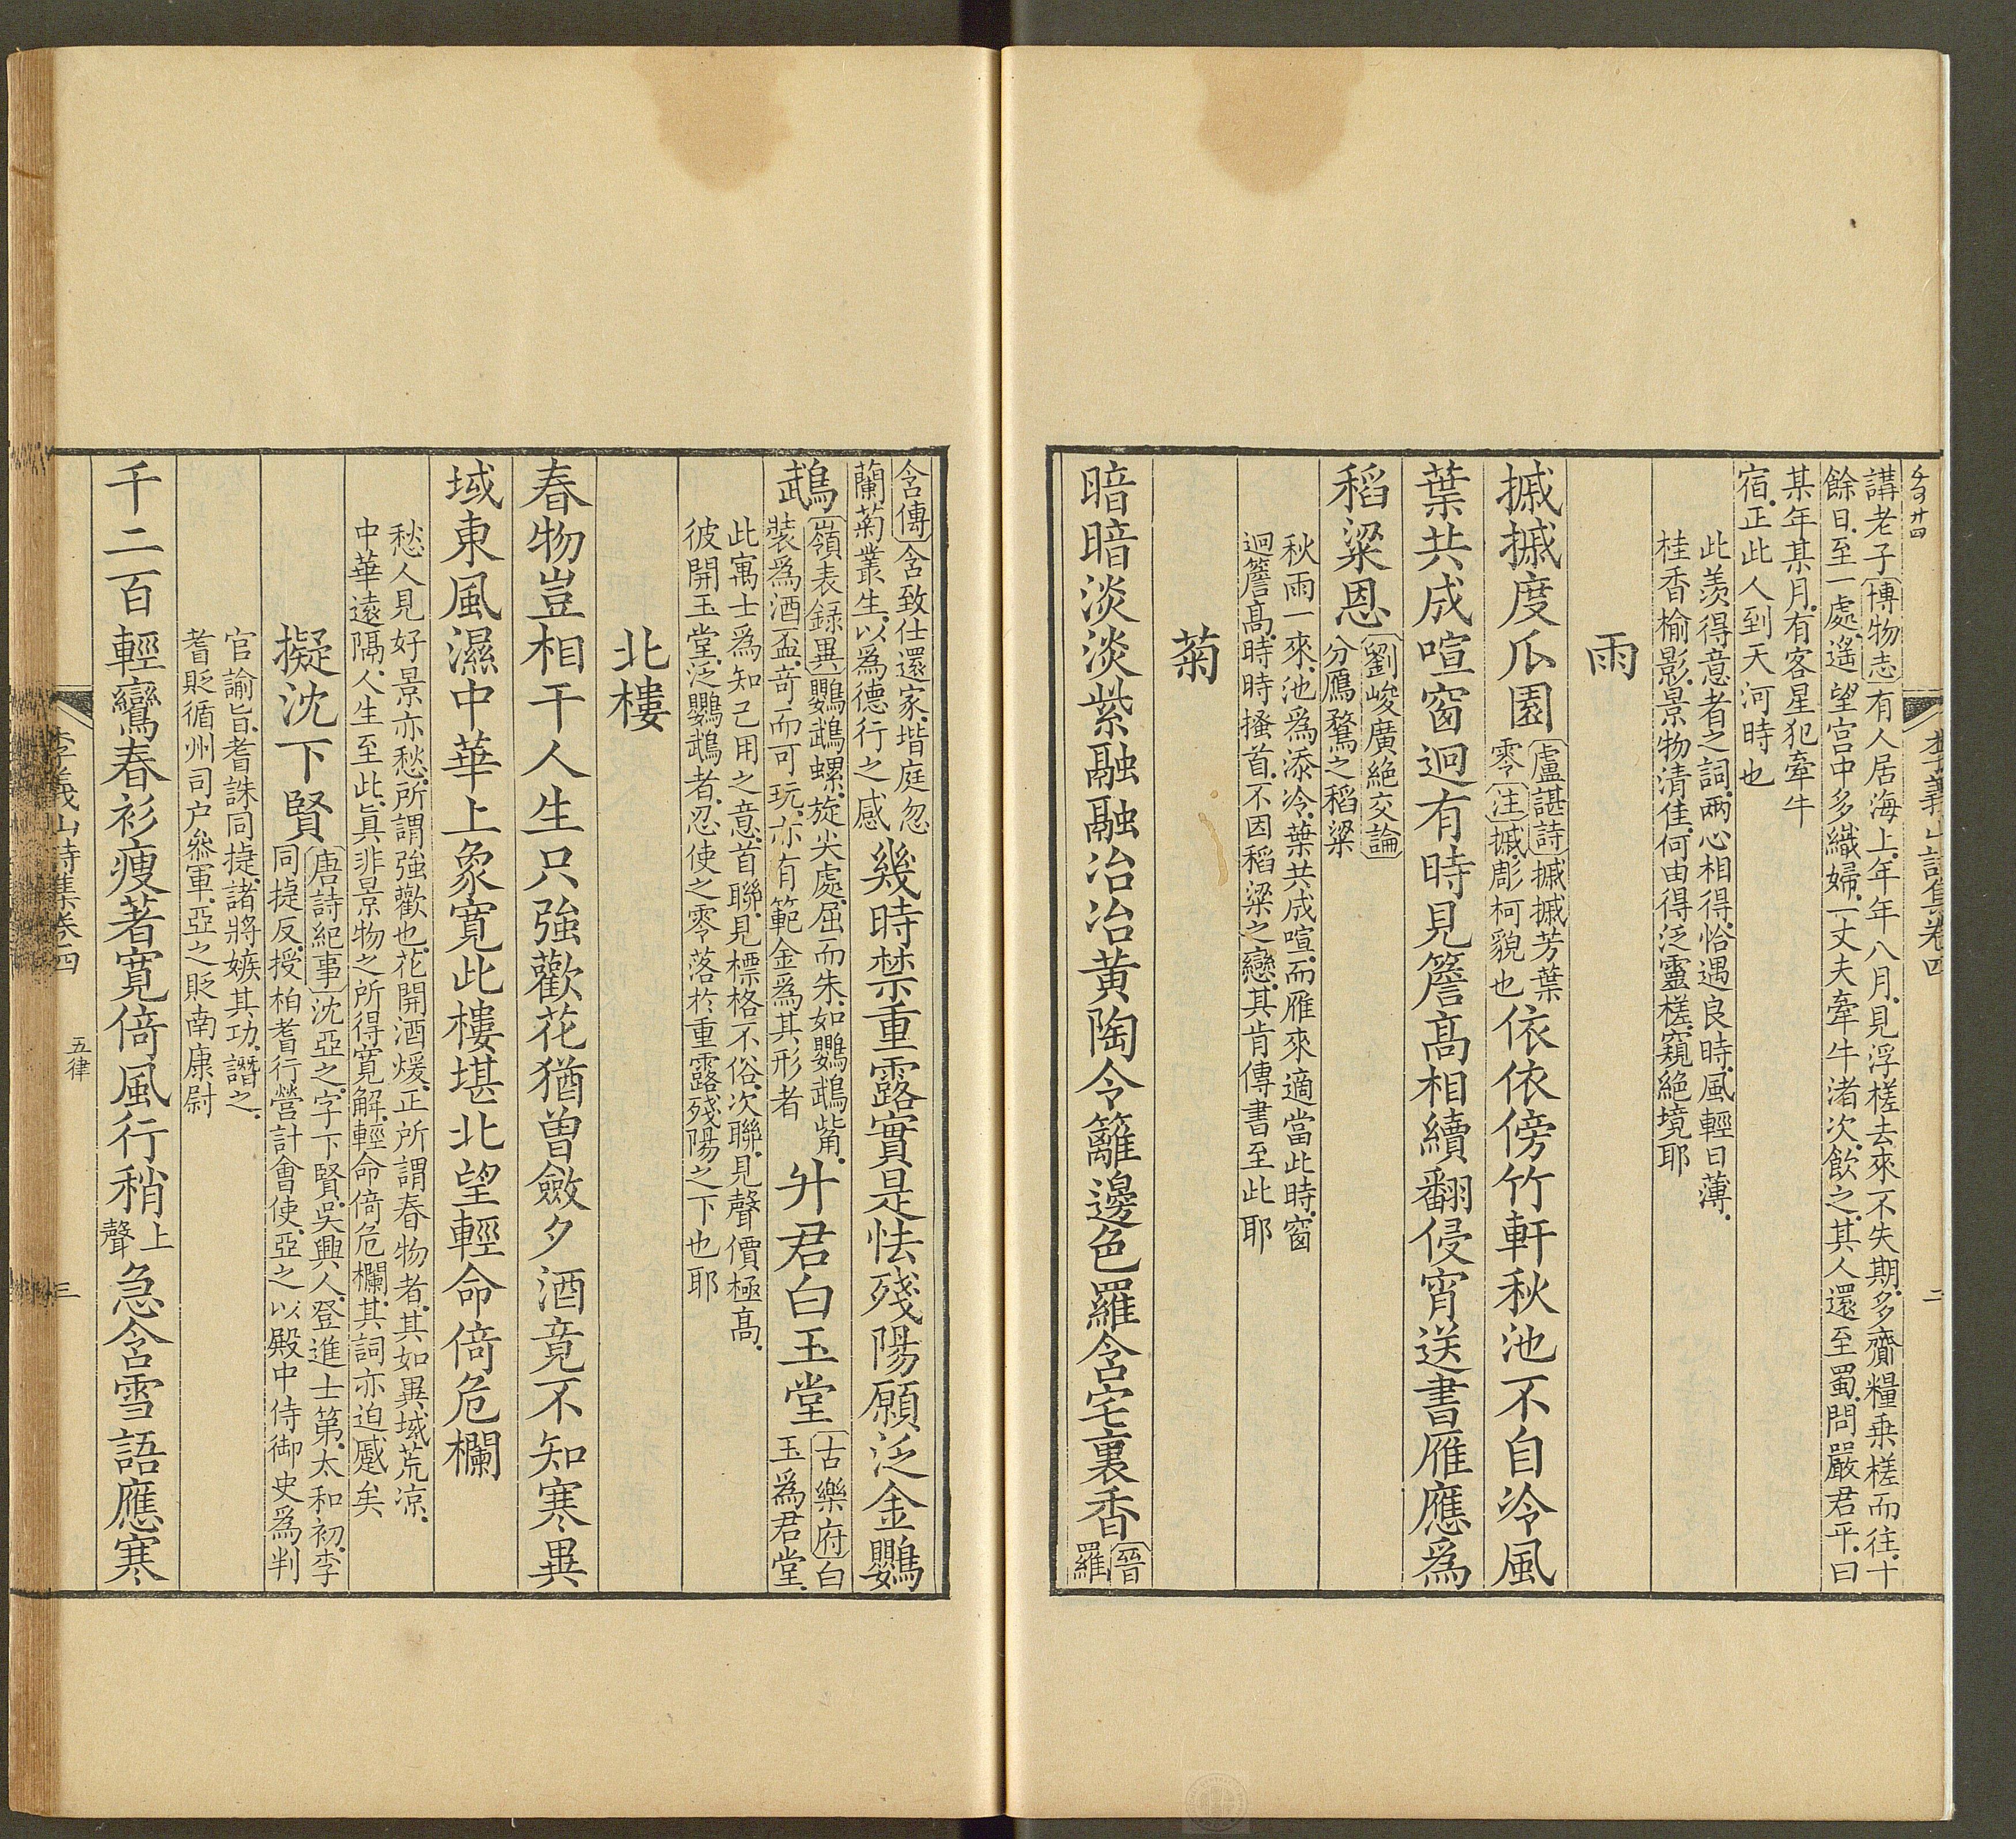 李義山詩集卷四
二
講老子博物志有人居海上年年八月見浮槎去來不失期多齎糧乗槎而往十
餘日至一處遙望宫中多織婦一丈夫牽牛渚次飲之其人還至蜀問嚴君平曰
某年某月有客星犯牽牛
宿正此人到天河時也
此羨得意者之詞兩心相得恰遇良時風輕日薄
桂香榆影景物清佳何由得泛靈槎窺絶境耶
雨
摵摵度瓜園
盧諶詩摵摵芳葉
零注摵彫柯貌也
依依傍竹軒秋池不自冷風
葉共成喧窗迥有時見簷高相續翻侵宵送書雁應為
稻粱恩
劉峻廣絶交論
分鴈鶩之稻粱
秋雨一來池為添冷葉共成喧而雁來適當此時窗
迥簷高時時搔首不因稻粱之戀其肯傳書至此耶
菊
暗暗淡淡紫融融冶冶黄陶令籬邊色羅含宅裏香
晉
羅
含傳含致仕還家堦庭忽
蘭菊叢生以為德行之感
幾時禁重露實是怯殘陽願泛金鸚
鵡
嶺表録異鸚鵡螺旋尖處屈而朱如鸚鵡觜
裝為酒盃竒而可玩亦有範金為其形者
升君白玉堂
古樂府白
玉為君堂
此寓士為知己用之意首聯見標格不俗次聯見聲價極高
彼開玉堂泛鸚鵡者忍使之零落於重露殘陽之下也耶
北樓
春物豈相干人生只強歡花猶曾斂夕酒竟不知寒異
域東風濕中華上象寛此樓堪北望輕命倚危欄
愁人見好景亦愁所謂強歡也花開酒煖正所謂春物者其如異域荒凉
中華遠隔人生至此真非景物之所得寛解輕命倚危欄其詞亦迫蹙矣
擬沈下賢
唐詩紀事沈亞之字下賢吳興人登進士第太和初李
同㨗反授柏耆行營計會使亞之以殿中侍御史為判
官諭旨耆誅同㨗諸將嫉其功譖之
耆貶循州司户叅軍亞之貶南康尉
千二百輕鸞春衫瘦著寛倚風行稍
上
聲
急含雪語應寒
李義山詩集卷四
五律
三